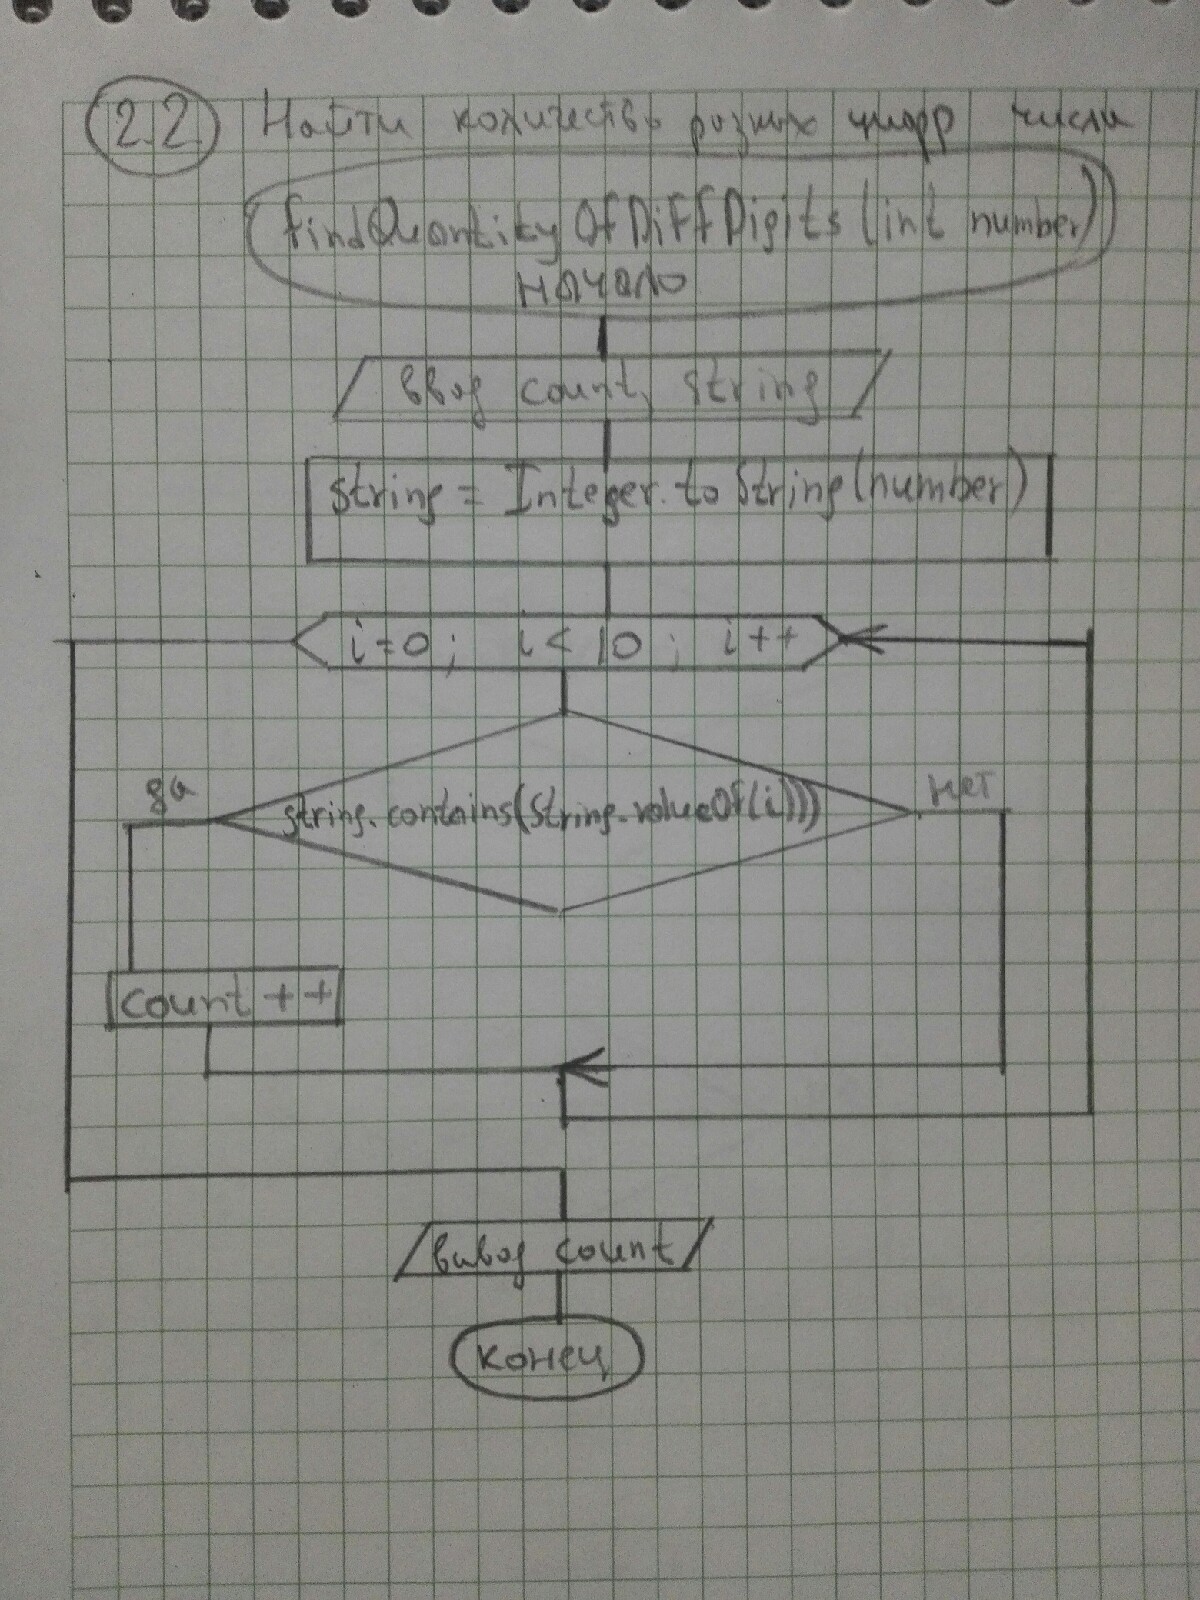 2.2 Найти количество разных цифр числа
findQuantityOfDiffDigits (int number)
начало
ввод count, string
string = Integer.toString(number)
i=0; i<10; i++
да
string.contains(String.valueOf(i)))
нет
count ++
вывод count
конец